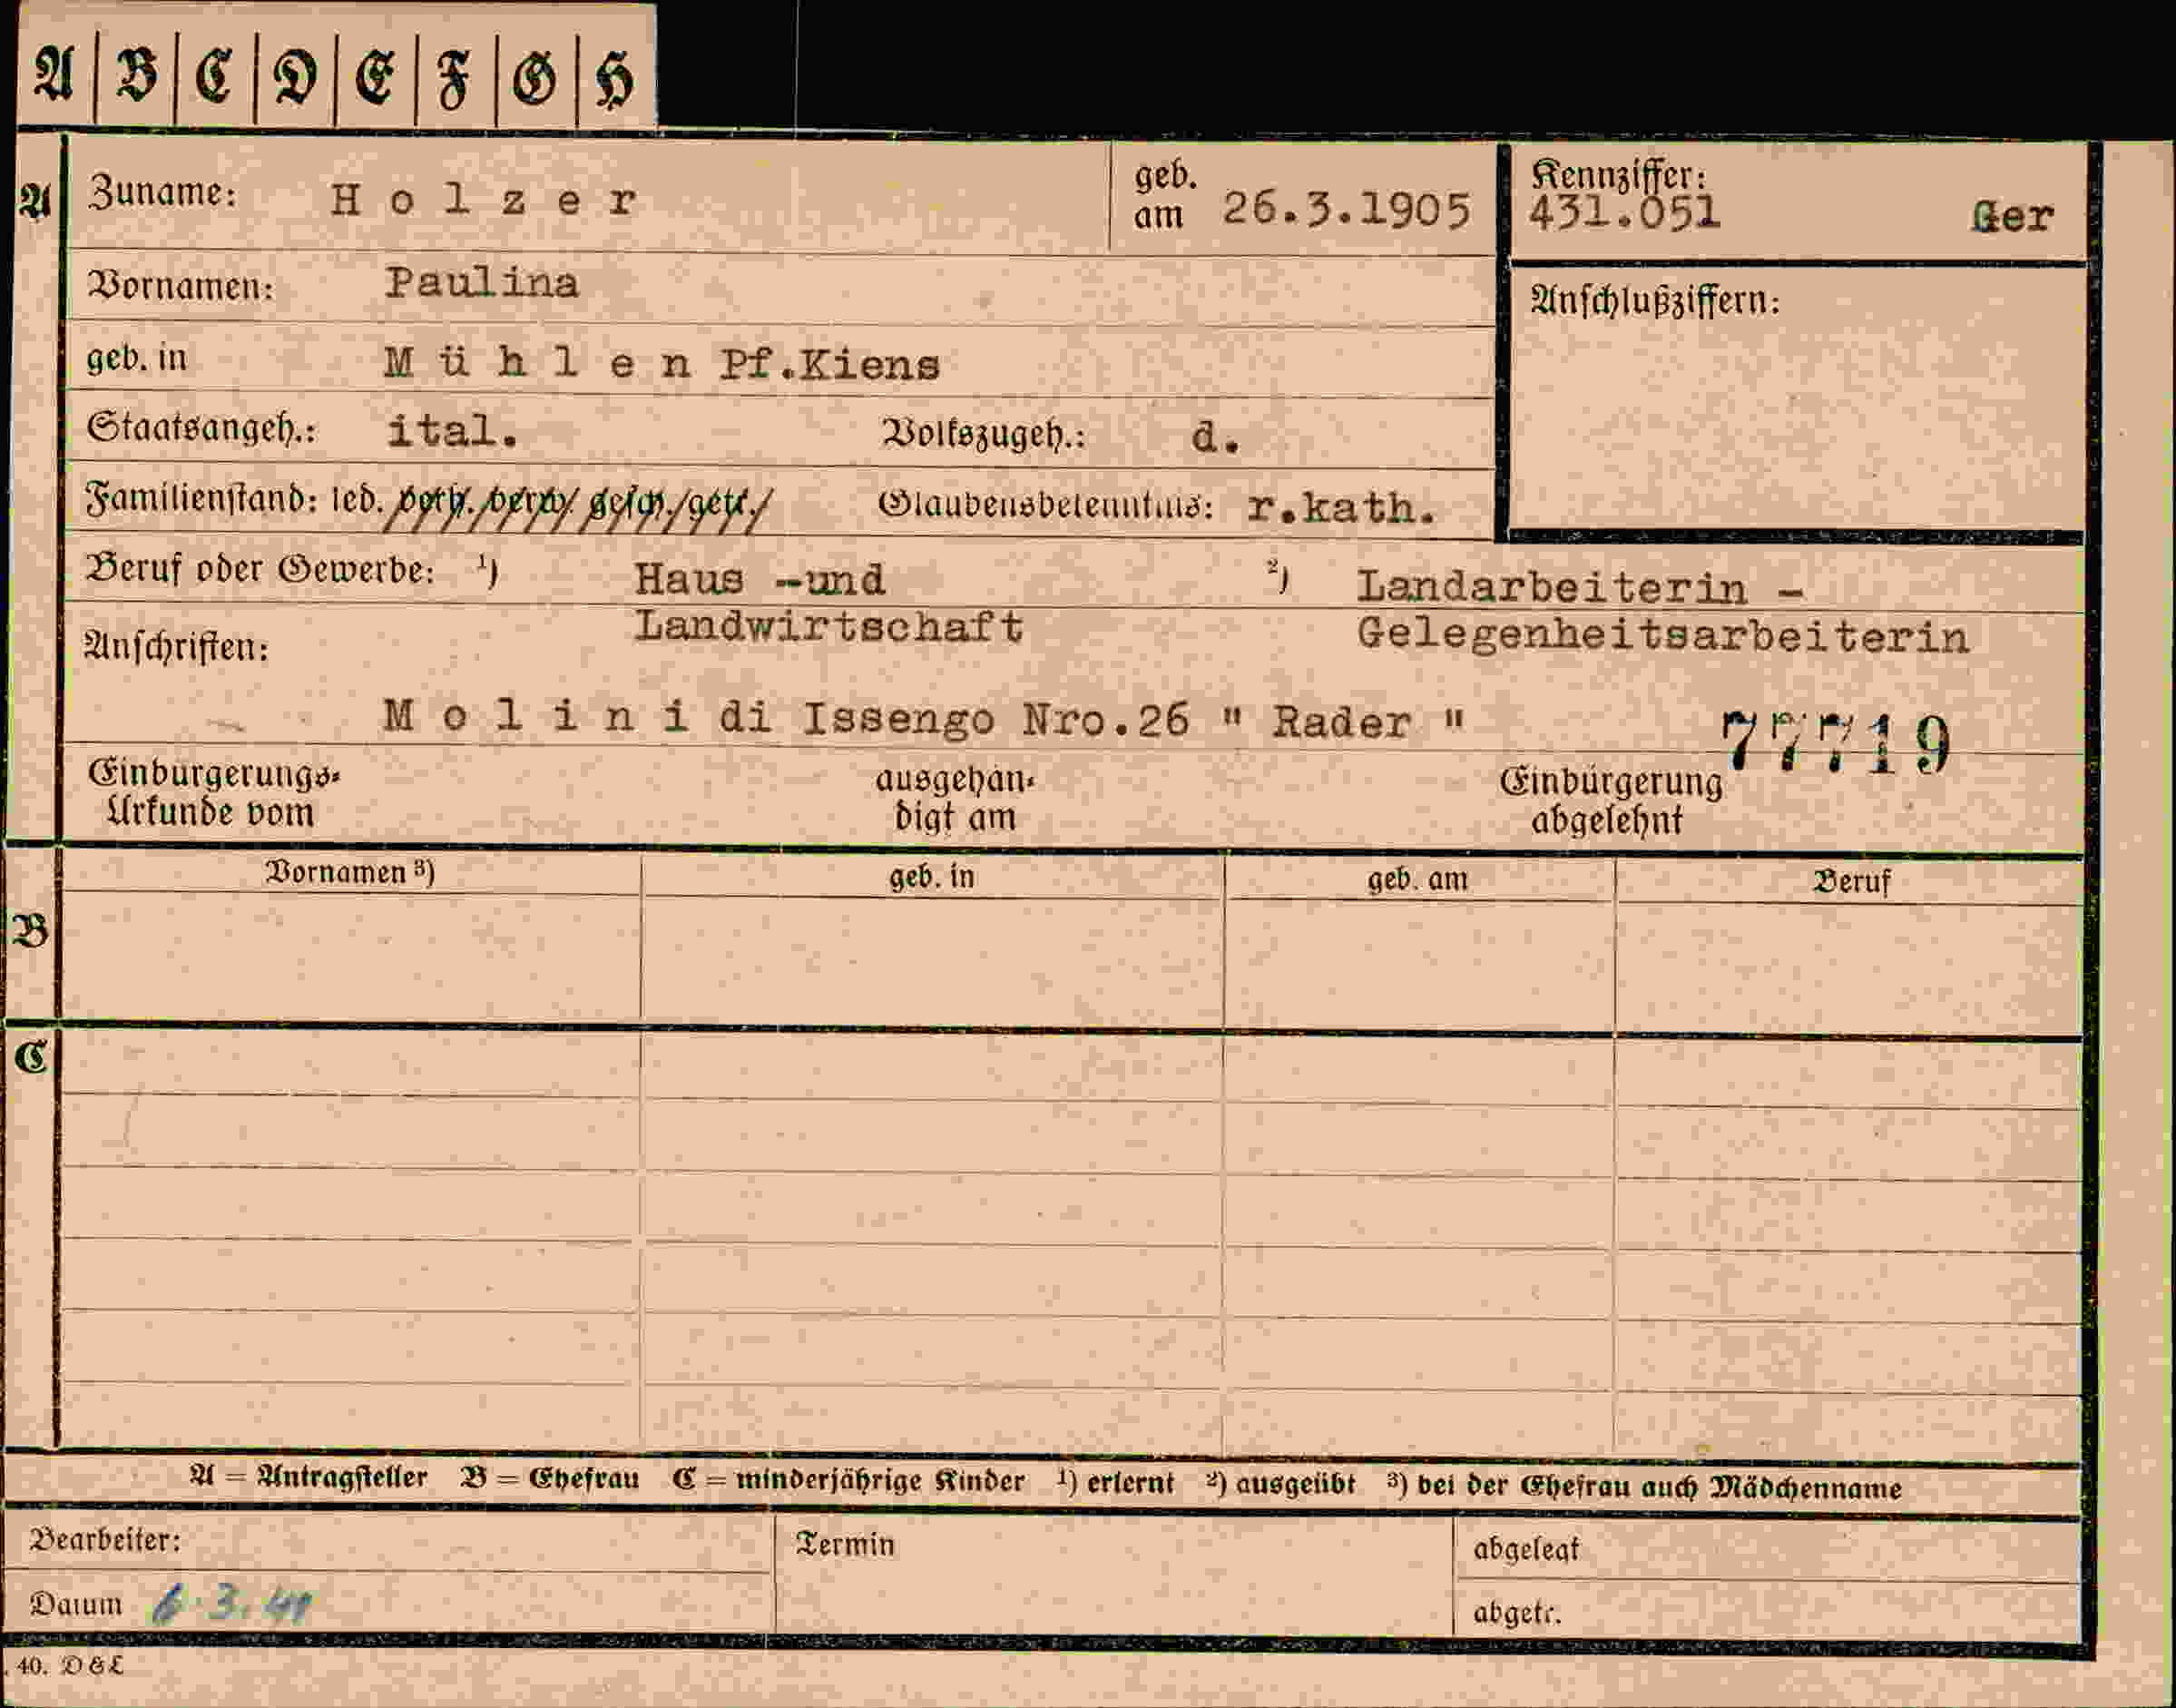 A | B | C | D | E | F | G | H
A Zuname: Holzer geb. am 26.3.1905 Kennziffer: 431.051 Ger
Vornamen: Paulina Anschlußziffern:
geb. in Mühlen Pf.Kiens
Staatsangeh.: ital. Volkszugeh.: d.
Familienstand: led. verh. verw. gesch./getr./ Glaubensbekenntnis: r.kath.
Beruf oder Gewerbe: ¹) Haus -und ²) Landarbeiterin -
Landwirtschaft Gelegenheitsarbeiterin
Anschriften:
Molini di Issengo Nro.26 " Rader " 77719
Einbürgerungs- ausgehän- Einbürgerung
Urkunde vom digt am abgelehnt
Vornamen ³) geb. in geb. am Beruf
B
C
A = Antragsteller B = Ehefrau C = minderjährige Kinder ¹) erlernt ²) ausgeübt ³) bei der Ehefrau auch Mädchenname
Bearbeiter: Termin abgelegt
Datum 6.3.41 abgetr.
40. D&L